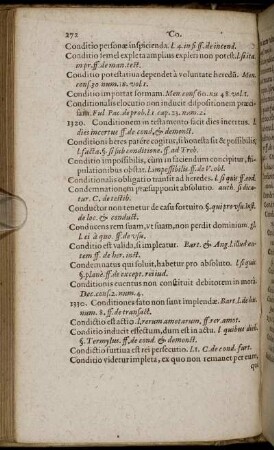 272 Co.
Conditio personæ inspicienda. l. 4. in fi. ff. de incend.
Conditio semel expleta amplius expleri non potest. l. si ita.
in pr. ff. de man. test.
Conditio potestatiua dependet à voluntate heredũ. Men.
cons. 30. num. 18. vol. 1.
Conditio importat formam. Men. cons. 60. nu. 48. vol. 1.
Conditionalis elocutio non inducit dispositionem præci-
sam. Ful. Pac. de prob. l. 1. cap. 23. num. 2.
1320. Conditionem in testamento facit dies incertus. l.
dies incertus ff. de cond. & demonst.
Conditioni heres parêre cogitur, si honesta sit & possibilis;
l. facta. §. si sub conditione. ff. ad Treb.
Conditio impossibilis, cùm in faciendum concipitur, sti-
pulationibus obstat. l. impossibilis ff. de V. obl.
Conditionalis obligatio transit ad heredes. l. si quis ff. eod.
Condemnationem præsupponit absolutio. auth. si dica-
tur. C. de testib.
Conductor non tenetur de casu fortuito. §. qui pro vsu. Inst.
de loc. & conduct.
Conducens rem suam, vt suam, non perdit dominium. gl.
l. ei à quo. ff. de vsu.
Conditio est valida, si impleatur. Bart. & Ang.
tem ff. de her. inst.
Condemnatus qui soluit, habetur pro absoluto. l. si quis
§. planè. ff. de except. rei iud.
Conditionis euentus non constituit debitorem in mori.
Dec. cons. 2. num. 4.
1330. Conditiones fato non sunt implendæ. Bart. l. de
num. 8. ff. de transact.
Condictio est actio. l. rerum amotarum, ff. rer. amot.
Conditio inducit effectum, dum est in actu. l. quibus dieb.
§. Termylius. ff. de cond. & demonst.
Condictio furtiua est rei persecutio. l. 1. C. de cond. furt.
Conditio videtur impleta, ex quo non remanet per eum,
qui